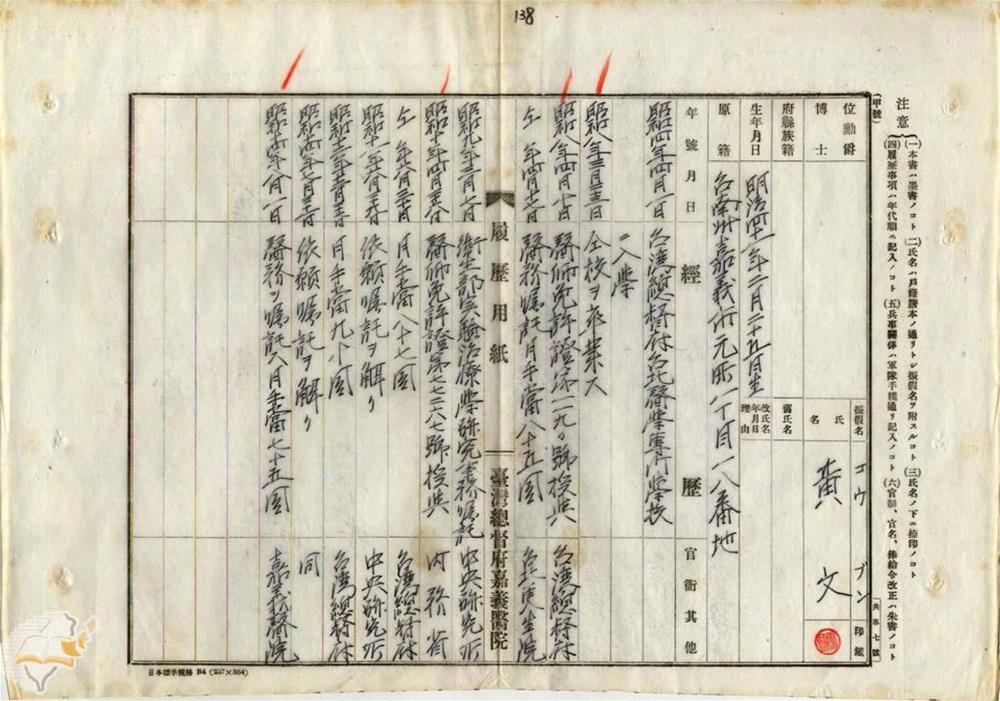 138
注意
(一)本書ハ墨書ノコト (二)氏名ハ戸籍謄本ノ通リトシ振假名ヲ附スルコト (三)氏名ノ下ニ捺印ノコト
(四)履歷事項ハ年代順ニ記入ノコト (五)兵事關係ハ軍隊手牒通リ記入ノコト (六)官等、官名、俸給令改正ハ朱書ノコト
(甲號)
共第七號
位勳爵
博士
振假名 コウ ブン
氏名 黃文
印鑑
府縣族籍
舊氏名
生年月日 明治四十一年二月二十五日生
改氏名年月日理由
原籍 台南州嘉義市元町八丁目一八番地
年號月日 經歷 官衙其他
昭和四年四月一日 台灣總督府台北醫學專門學校
ニ入學
昭和八年三月三日 仝校ヲ卒業ス
昭和八年四月八日 醫師免許證第一一九〇號授與 台灣總督府
仝年四月 醫務ヲ囑託月手當八十五圓
履歷用紙
臺灣總督府嘉義醫院
昭和九年三月七日 衛生部實驗治療學研究事務囑託 中央研究所
昭和十年四月 醫師免許證第七七二六七號授與 內務省
仝年 月手當八十七圓 台灣總督府
昭和十一年 依願囑託ヲ解ク 中央研究所
昭和十二年 月手當九十圓 台灣總督府
昭和十四年七月 依願囑託ヲ解ク 同
昭和十四年八月一日 醫務ヲ囑託ス月手當七十五圓 嘉義醫院
日本標準規格 B4 (257×364)